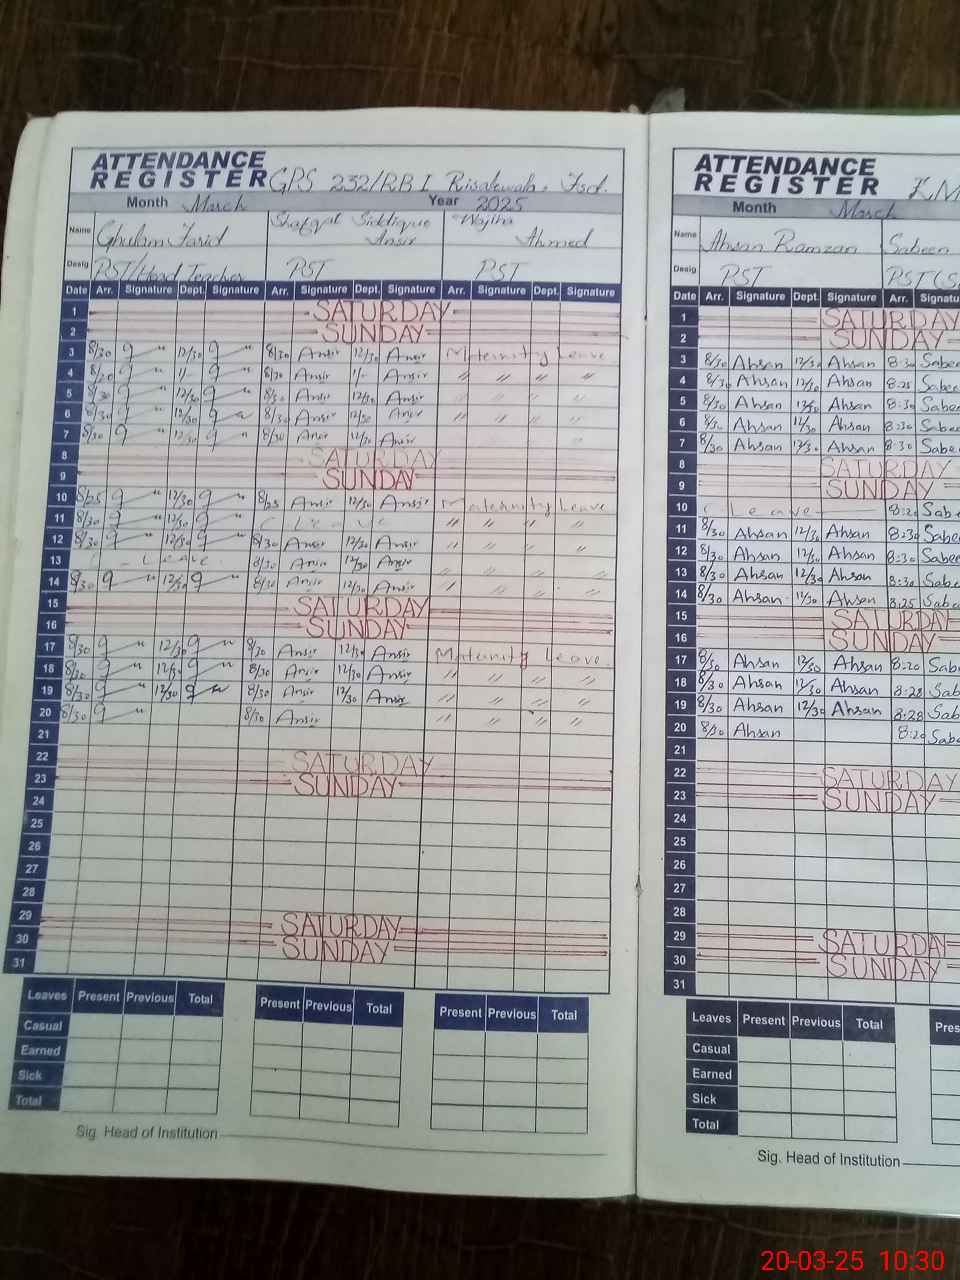 ATTENDANCE
REGISTER GPS 232/RB I, Risalewala, Fsd.
Month March Year 2025
Name Ghulam Farid Shafqat Siddique Ansir Wajiha Ahmed
Desig PST/Head Teacher PST PST
Date Arr. Signature Dept. Signature Arr. Signature Dept. Signature Arr. Signature Dept. Signature
1 SATURDAY
2 SUNDAY
3 8/30 12/30 8/30 Ansir 12/30 Ansir Maternity Leave
4 8/20 8/30 Ansir Ansir 〃 〃 〃 〃
5 8/30 12/30 8/30 Ansir 12/30 Ansir 〃 〃 〃 〃
6 8/30 12/30 8/30 Ansir 12/30 Ansir 〃 〃 〃 〃
7 8/30 12/30 8/30 Ansir 12/30 Ansir
8 SATURDAY
9 SUNDAY
10 8/25 12/30 8/25 Ansir 12/30 Ansir Maternity Leave
11 8/30 12/30 Leave 〃 〃 〃 〃
12 8/30 12/30 8/30 Ansir 12/30 Ansir 〃 〃 〃 〃
13 Leave 8/30 Ansir 12/30 Ansir 〃 〃 〃
14 8/30 12/30 8/30 Ansir 12/30 Ansir 〃 〃 〃
15 SATURDAY
16 SUNDAY
17 8/30 12/30 8/30 Ansir 12/30 Ansir Maternity Leave.
18 8/30 12/30 8/30 Ansir 12/30 Ansir 〃 〃 〃 〃
19 8/30 12/30 8/30 Ansir 12/30 Ansir 〃 〃 〃 〃
20 8/30 8/30 Ansir 〃 〃 〃 〃
21
22 SATURDAY
23 SUNDAY
24
25
26
27
28
29 SATURDAY
30 SUNDAY
31
Leaves Present Previous Total Present Previous Total Present Previous Total
Casual
Earned
Sick
Total
Sig. Head of Institution
ATTENDANCE
REGISTER
Month March
Name Ahsan Ramzan Sabeen
Desig PST
Date Arr. Signature Dept. Signature Arr.
1 SATURDAY
2 SUNDAY
3 8/30 Ahsan 12/30 Ahsan 8:30
4 8/30 Ahsan 12/30 Ahsan 8:25
5 8/30 Ahsan 12/30 Ahsan 8:30
6 8/30 Ahsan 12/30 Ahsan 8:30
7 8/30 Ahsan 12/30 Ahsan 8:30
8 SATURDAY
9 SUNDAY
10 Leave 8:20
11 8/30 Ahsan 12/30 Ahsan 8:30
12 8/30 Ahsan 12/30 Ahsan 8:30
13 8/30 Ahsan 12/30 Ahsan 8:30
14 8/30 Ahsan 12/30 Ahsan 8:25
15 SATURDAY
16 SUNDAY
17 8/30 Ahsan 12/30 Ahsan 8:20
18 8/30 Ahsan 12/30 Ahsan 8:28
19 8/30 Ahsan 12/30 Ahsan 8:28
20 8/30 Ahsan 8:20
21
22 SATURDAY
23 SUNDAY
24
25
26
27
28
29 SATURDAY
30 SUNDAY
31
Leaves Present Previous Total
Casual
Earned
Sick
Total
Sig. Head of Institution
20-03-25 10:30